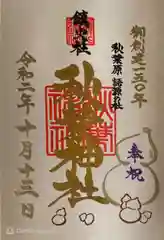 御創建一五〇年
奉祝
秋葉原 語源の社
鎮火社
秋葉神社
令和二年十月十三日